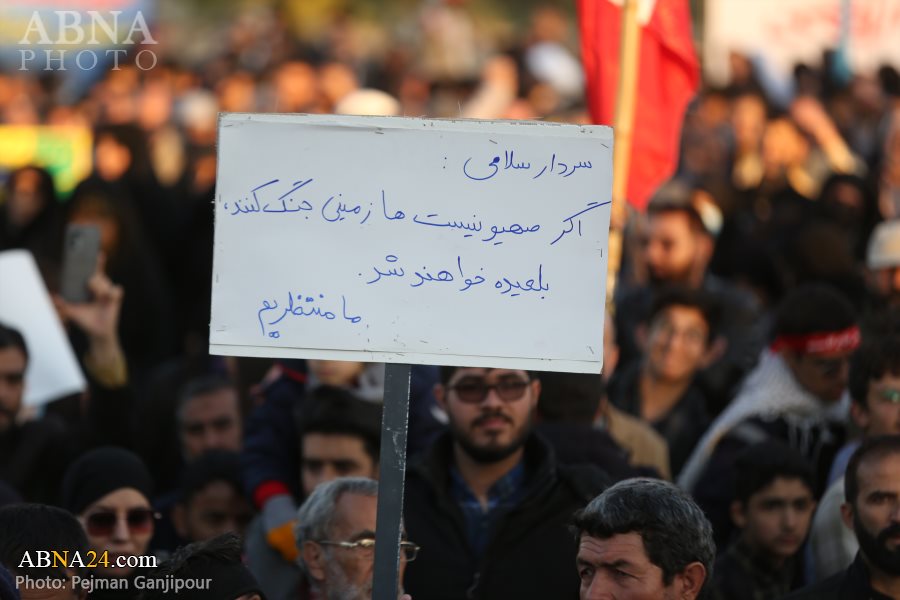 ABNA
PHOTO
سردار سلامی :
اگر صهیونیست ها زمینی جنگ کنند،
بلعیده خواهند شد.
ما منتظریم
ABNA24.com
Photo: Pejman Ganjipour